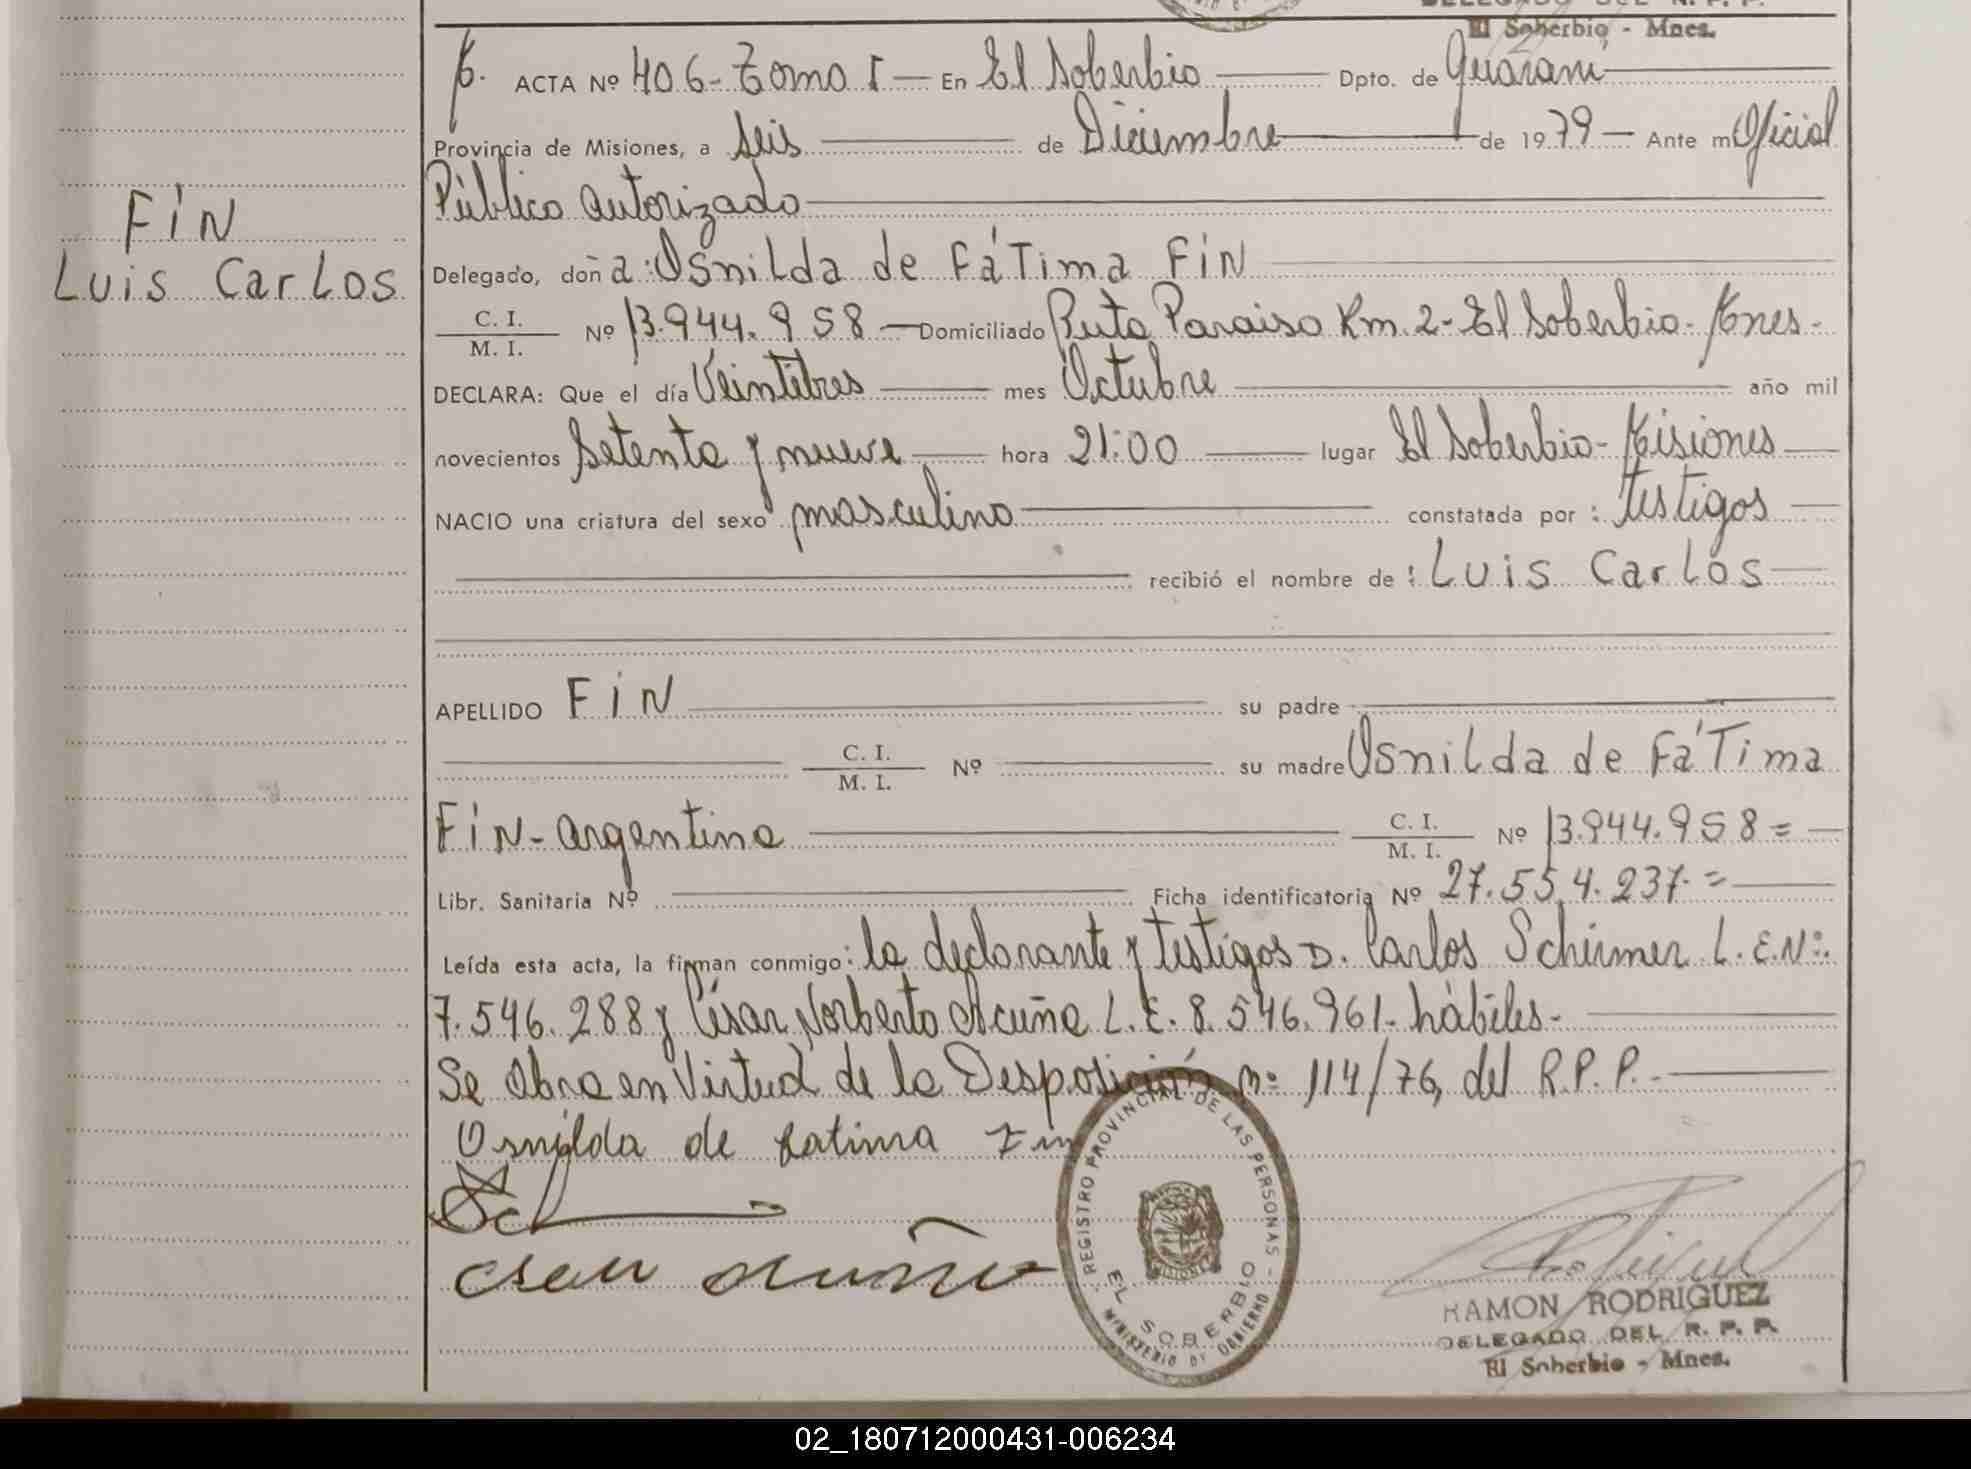 DELEGADO DEL R. P. P.
El Soberbio - Mnes.
ACTA Nº 406-Tomo I — En El Soberbio — Dpto. de Guaraní
Provincia de Misiones, a seis — de Diciembre — de 1979 — Ante mi Oficial
Público autorizado
FiN
Luis CarLos
Delegado, doña: OsniLda de FáTima FiN
C. I. / M. I. Nº 13.944.958 — Domiciliado Ruta Paraiso Km. 2- El Soberbio- Mnes-
DECLARA: Que el día Veintitres — mes Octubre — año mil
novecientos Setenta y nueve — hora 21:00 — lugar El Soberbio- Misiones
NACIO una criatura del sexo masculino — constatada por: testigos
recibió el nombre de: Luis CarLos
APELLIDO FiN — su padre
C. I. / M. I. Nº — su madre OsniLda de FáTima
FiN- argentina — C. I. / M. I. Nº 13.944.958=
Libr. Sanitaria Nº — Ficha identificatoria Nº 27.554.237=
Leída esta acta, la firman conmigo: la declarante y testigos D. Carlos Schirmer L.E.Nº:
7.546.288 y César Norberto Acuña L.E. 8.546.961- hábiles-
Se Obra en Virtud de la Desposición nº 114/76, del R.P.P.-
Osnilda de fatima Fin
Cesar Acuña
REGISTRO PROVINCIAL DE LAS PERSONAS
MISIONES
EL SOBERBIO
MINISTERIO DE GOBIERNO
RAMON RODRIGUEZ
DELEGADO DEL R. P. P.
El Soberbio - Mnes.
02_180712000431-006234